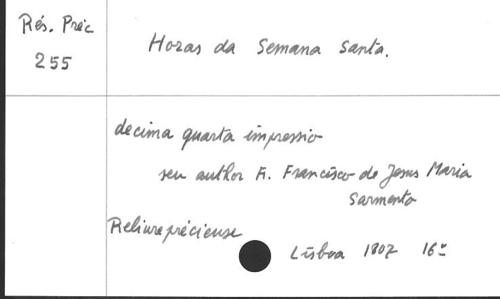 Rés. Préc
255
Horas da Semana Santa.
decima quarta impressio
seu author Fr. Francisco de Jesus Maria
Sarmento
Reliure précieuse
Lisboa 1807 16º